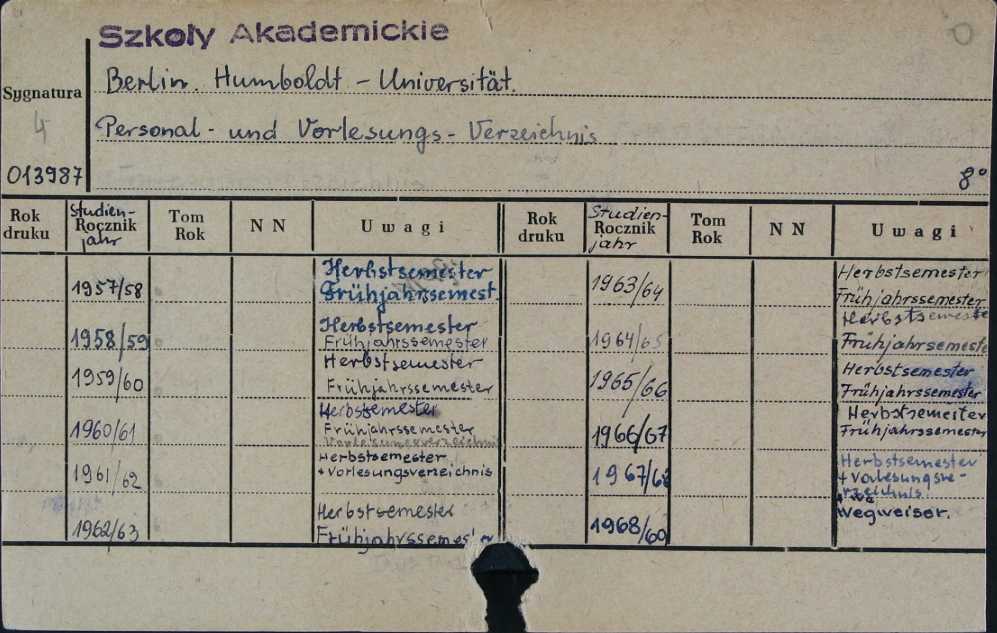 Szkoły Akademickie
Berlin. Humboldt - Universität.
Sygnatura
4
Personal - und Vorlesungs - Verzeichnis
013987
8°
Rok druku
Studien-Rocznik jahr
Tom Rok
N N
Uwagi
Rok druku
Studien-Rocznik jahr
Tom Rok
N N
Uwagi
1957/58
Herbstsemester
Frühjahrssemest.
1958/59
Herbstsemester
Frühjahrssemester
1959/60
Herbstsemester
Frühjahrssemester
1960/61
Herbstsemester
Frühjahrssemester
Vorlesungsverzeichnis
1961/62
Herbstsemester
+ Vorlesungsverzeichnis
1962/63
Herbstsemester
Frühjahrssemester
1963/64
Herbstsemester
Frühjahrssemester
1964/65
Herbstsemester
Frühjahrssemester
1965/66
Herbstsemester
Frühjahrssemester
1966/67
Herbstsemester
Frühjahrssemester
1967/68
Herbstsemester
+ Vorlesungsve-
rzeichnis.
1968/60
Wegweiser.